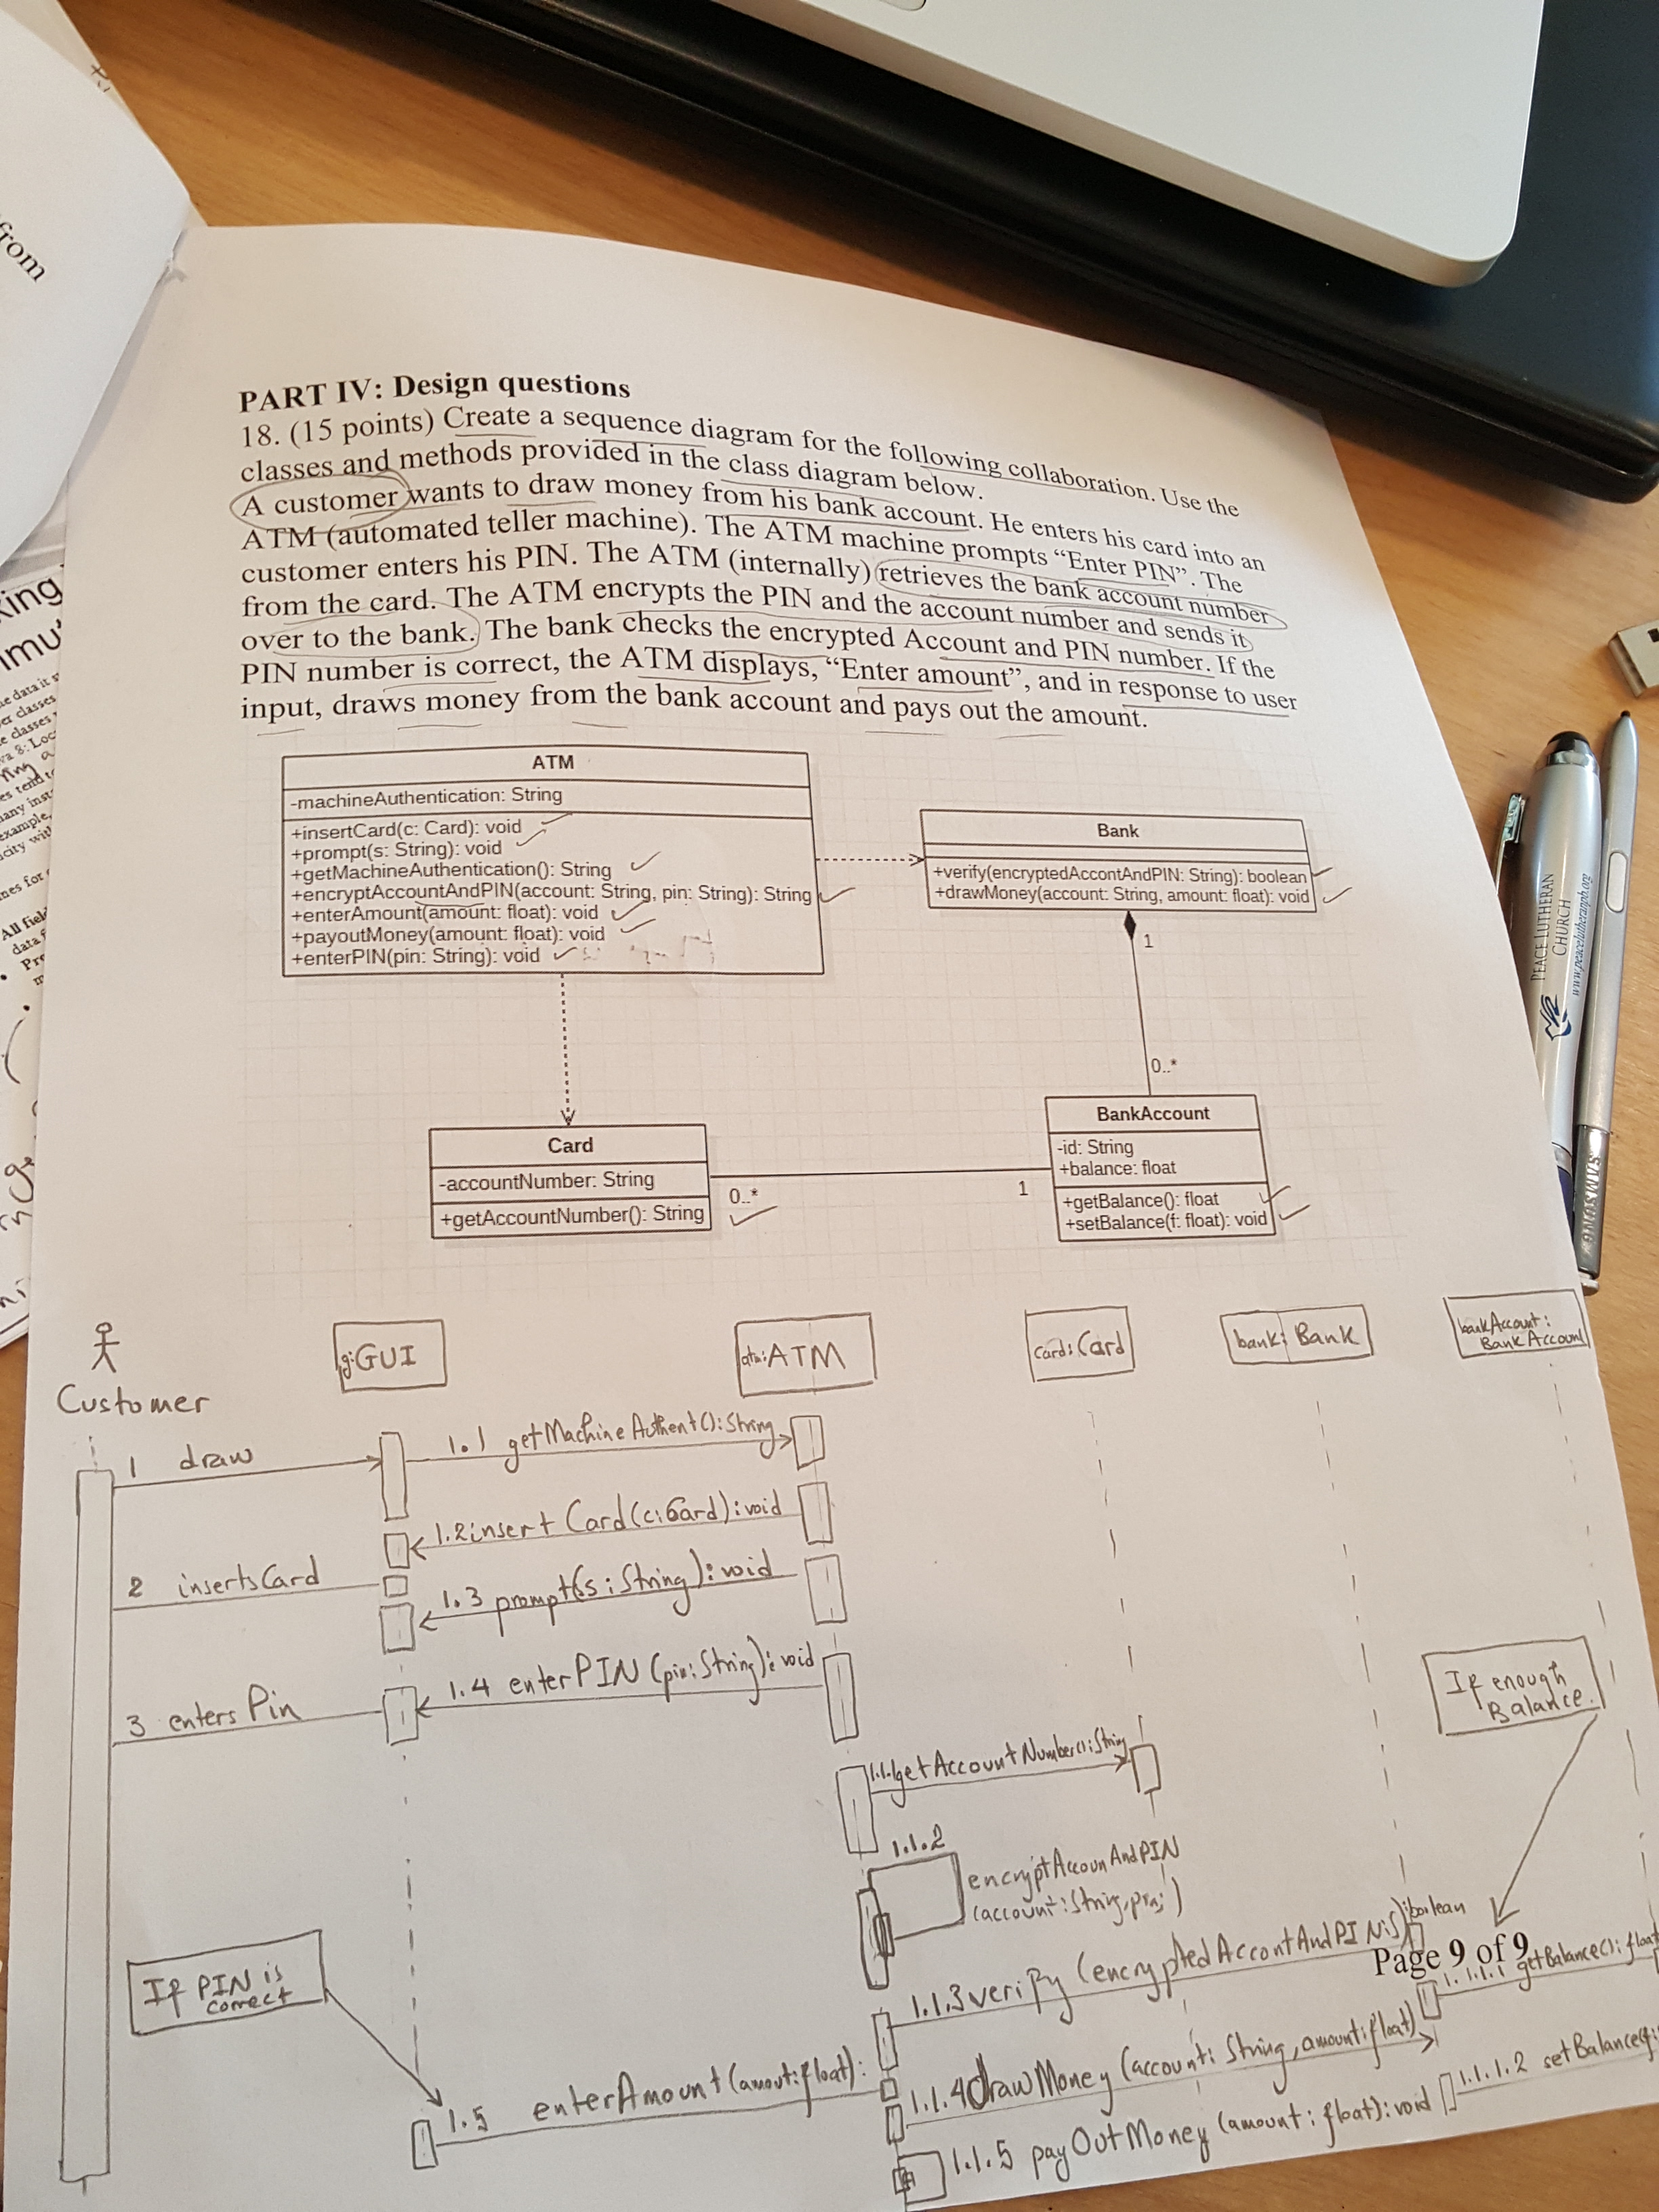 from
PART IV: Design questions
18. (15 points) Create a sequence diagram for the following collaboration. Use the
classes and methods provided in the class diagram below.
A customer wants to draw money from his bank account. He enters his card into an
ATM (automated teller machine). The ATM machine prompts “Enter PIN”. The
customer enters his PIN. The ATM (internally) retrieves the bank account number
from the card. The ATM encrypts the PIN and the account number and sends it
over to the bank. The bank checks the encrypted Account and PIN number. If the
PIN number is correct, the ATM displays, “Enter amount”, and in response to user
input, draws money from the bank account and pays out the amount.
ATM
-machineAuthentication: String
+insertCard(c: Card): void
+prompt(s: String): void
+getMachineAuthentication(): String
+encryptAccountAndPIN(account: String, pin: String): String
+enterAmount(amount: float): void
+payoutMoney(amount: float): void
+enterPIN(pin: String): void
Bank
+verify(encryptedAccontAndPIN: String): boolean
+drawMoney(account: String, amount: float): void
1
0..*
Card
-accountNumber: String
+getAccountNumber(): String
0..*
1
BankAccount
-id: String
+balance: float
+getBalance(): float
+setBalance(f: float): void
PEACE LUTHERAN
CHURCH
www.peacelutheranpb.org
SAMSUNG
Customer
g:GUI
atm:ATM
card:Card
bank: Bank
bankAccount:
BankAccount
1 draw
1.1 getMachineAuthent():String
1.2 insertCard(c:Card):void
2 insertsCard
1.3 prompt(s:String):void
1.4 enterPIN (pin:String):void
3 entersPin
If enough
Balance.
1.1.1getAccountNumber():String
1.1.2
encryptAccounAndPIN
(account:String,pin: )
If PIN is
correct
1.1.3 verify (encryptedAccontAndPIN:S):boolean
Page 9 of 9
1.1.1.1 getBalance(): float
1.5 enterAmount(amout:float):
1.1.4 drawMoney (account: String, amount:float)
1.1.1.2 setBalance(f:
1.1.5 payOutMoney (amount: float):void